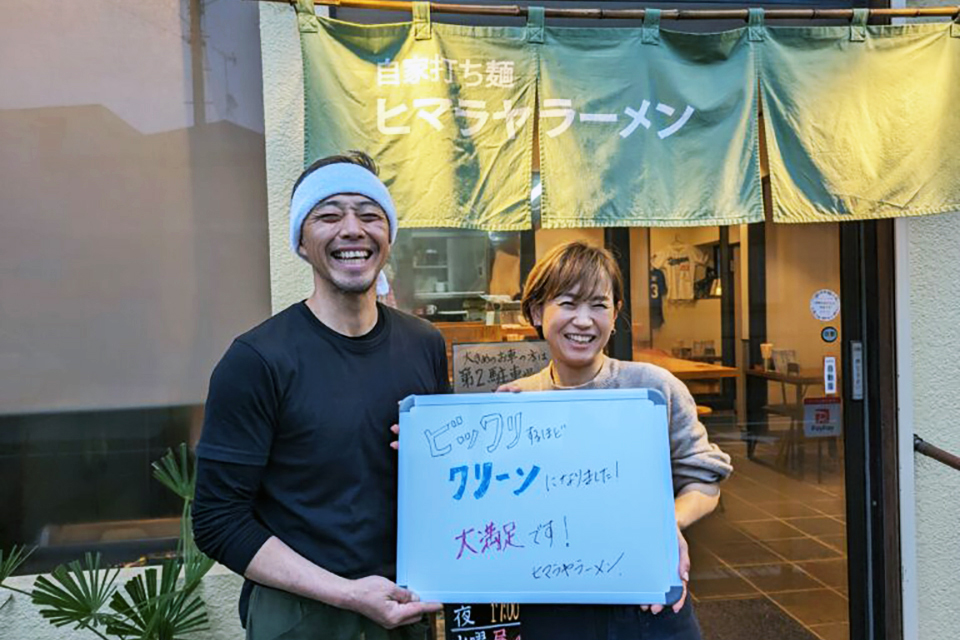 自家打ち麺
ヒマラヤラーメン
大きめのお車の方は
第2駐車場
ビックリするほど
クリーンになりました!
大満足です!
ヒマラヤラーメン.
自動扉
PayPay
夜 17:00